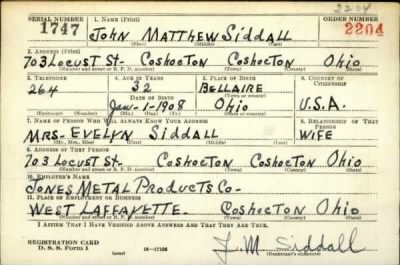 2204
SERIAL NUMBER 1. NAME (Print) ORDER NUMBER
1747 JOHN MATTHEW SIDDALL 2204
(First) (Middle) (Last)
2. ADDRESS (Print)
703 LOCUST ST- COSHOCTON COSHOCTON OHIO
(Number and street or R. F. D. number) (Town) (County) (State)
3. TELEPHONE 4. AGE IN YEARS 5. PLACE OF BIRTH 6. COUNTRY OF CITIZENSHIP
264 32 BELLAIRE
DATE OF BIRTH (Town or county)
JAN-1-1908 OHIO U.S.A.
(Exchange) (Number) (Mo.) (Day) (Yr.) (State or country)
7. NAME OF PERSON WHO WILL ALWAYS KNOW YOUR ADDRESS 8. RELATIONSHIP OF THAT PERSON
MRS- EVELYN SIDDALL WIFE
(Mr., Mrs., Miss) (First) (Middle) (Last)
9. ADDRESS OF THAT PERSON
703 LOCUST ST- COSHOCTON COSHOCTON OHIO
(Number and street or R. F. D. number) (Town) (County) (State)
10. EMPLOYER'S NAME
JONES METAL PRODUCTS CO-
11. PLACE OF EMPLOYMENT OR BUSINESS
WEST LAFFAYETTE. COSHOCTON OHIO
(Number and street or R. F. D. number) (Town) (County) (State)
I AFFIRM THAT I HAVE VERIFIED ABOVE ANSWERS AND THAT THEY ARE TRUE.
REGISTRATION CARD
D. S. S. Form 1 (over) 16—17105 J. M. Siddall
(Registrant's signature)